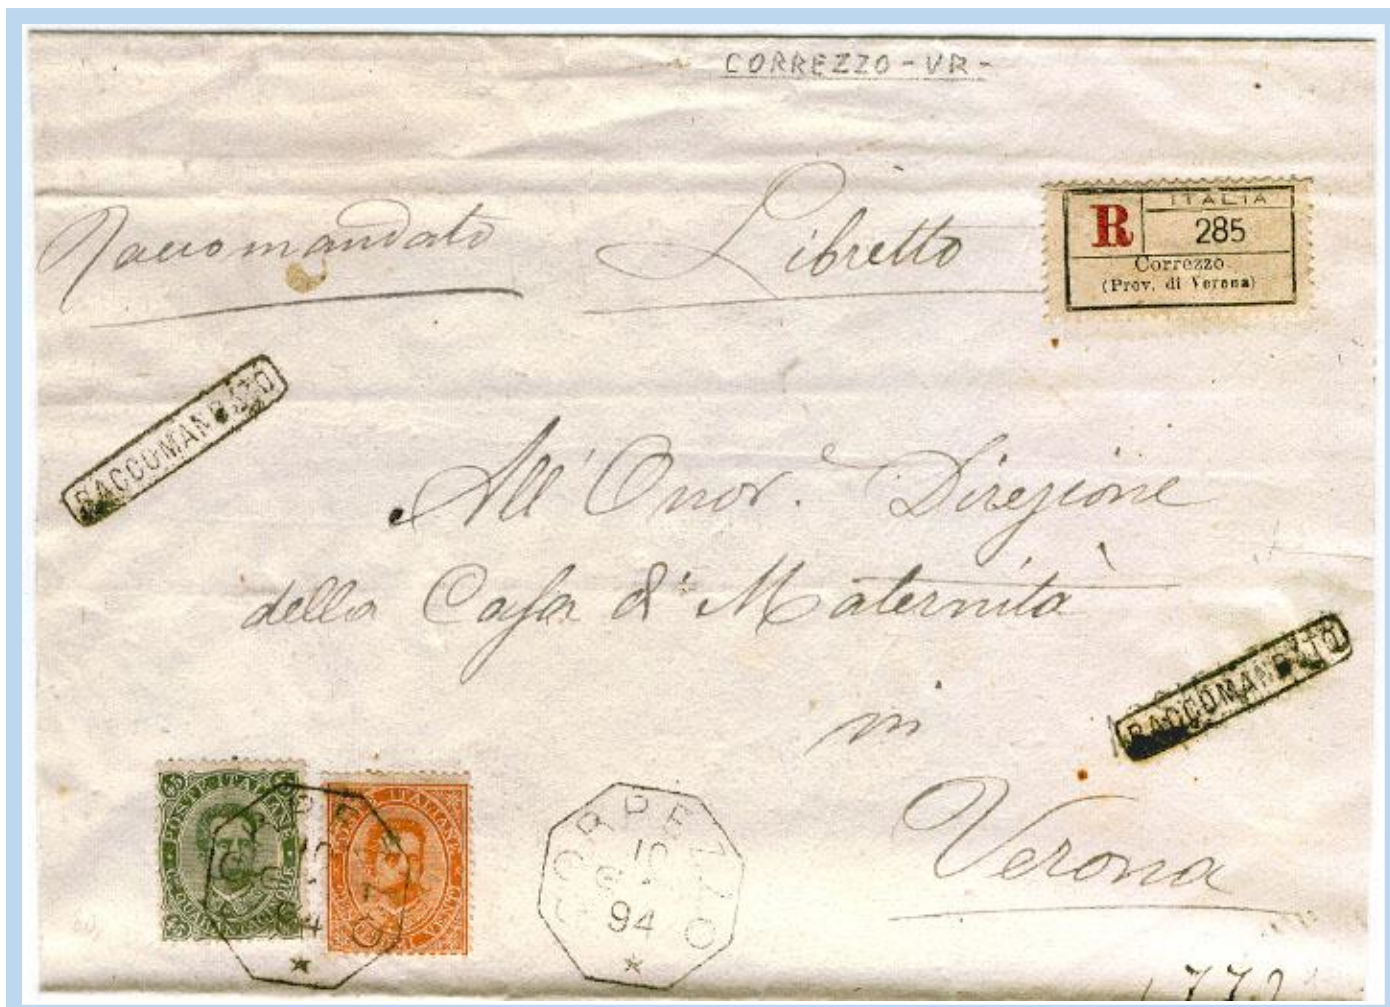 CORREZZO - VR -
Raccomandato Libretto
R
ITALIA
285
Correzzo
(Prov. di Verona)
RACCOMANDATO
All' Onor. Direzione
della Casa di Maternità
in
Verona
RACCOMANDATO
POSTE ITALIANE
QUARANTACINQUE
POSTE ITALIANE
CORREZZO
10
94